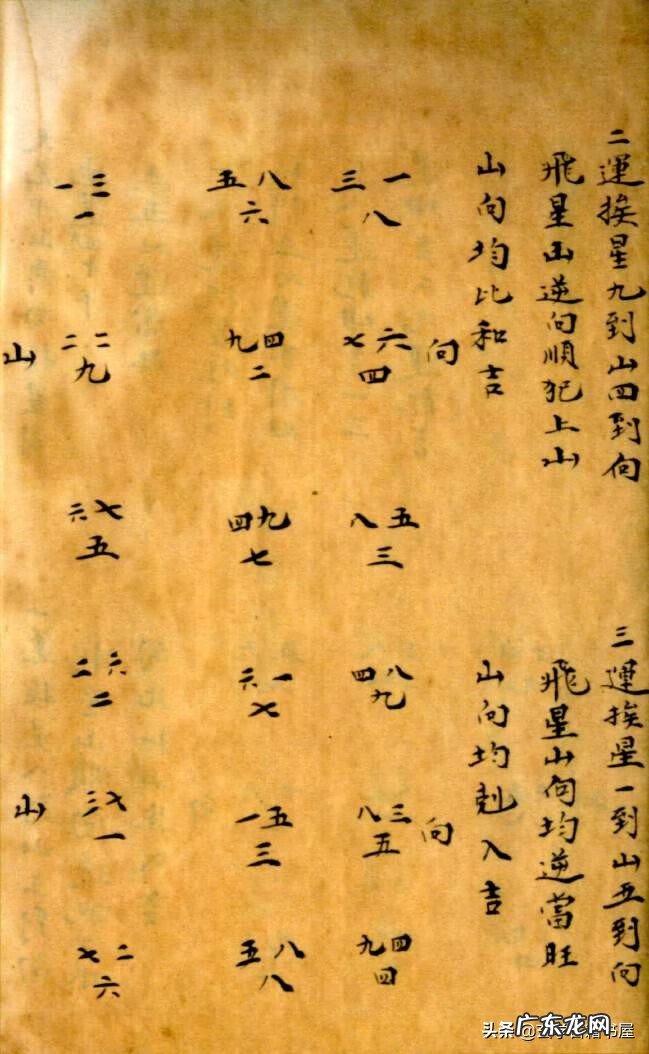 二運挨星九到山四到向
飛星山逆向順犯上山
山向均比和吉
向
三一
八
七六
四
八五
三
五八
六
九四
二
四九
七
一三
一
二二
九
六七
五
山
三運挨星一到山五到向
飛星山向均逆當旺
山向均剋入吉
向
四八
九
八三
五
九四
四
六一
七
一五
三
五八
八
二六
二
三七
一
七二
六
山
广东龙网